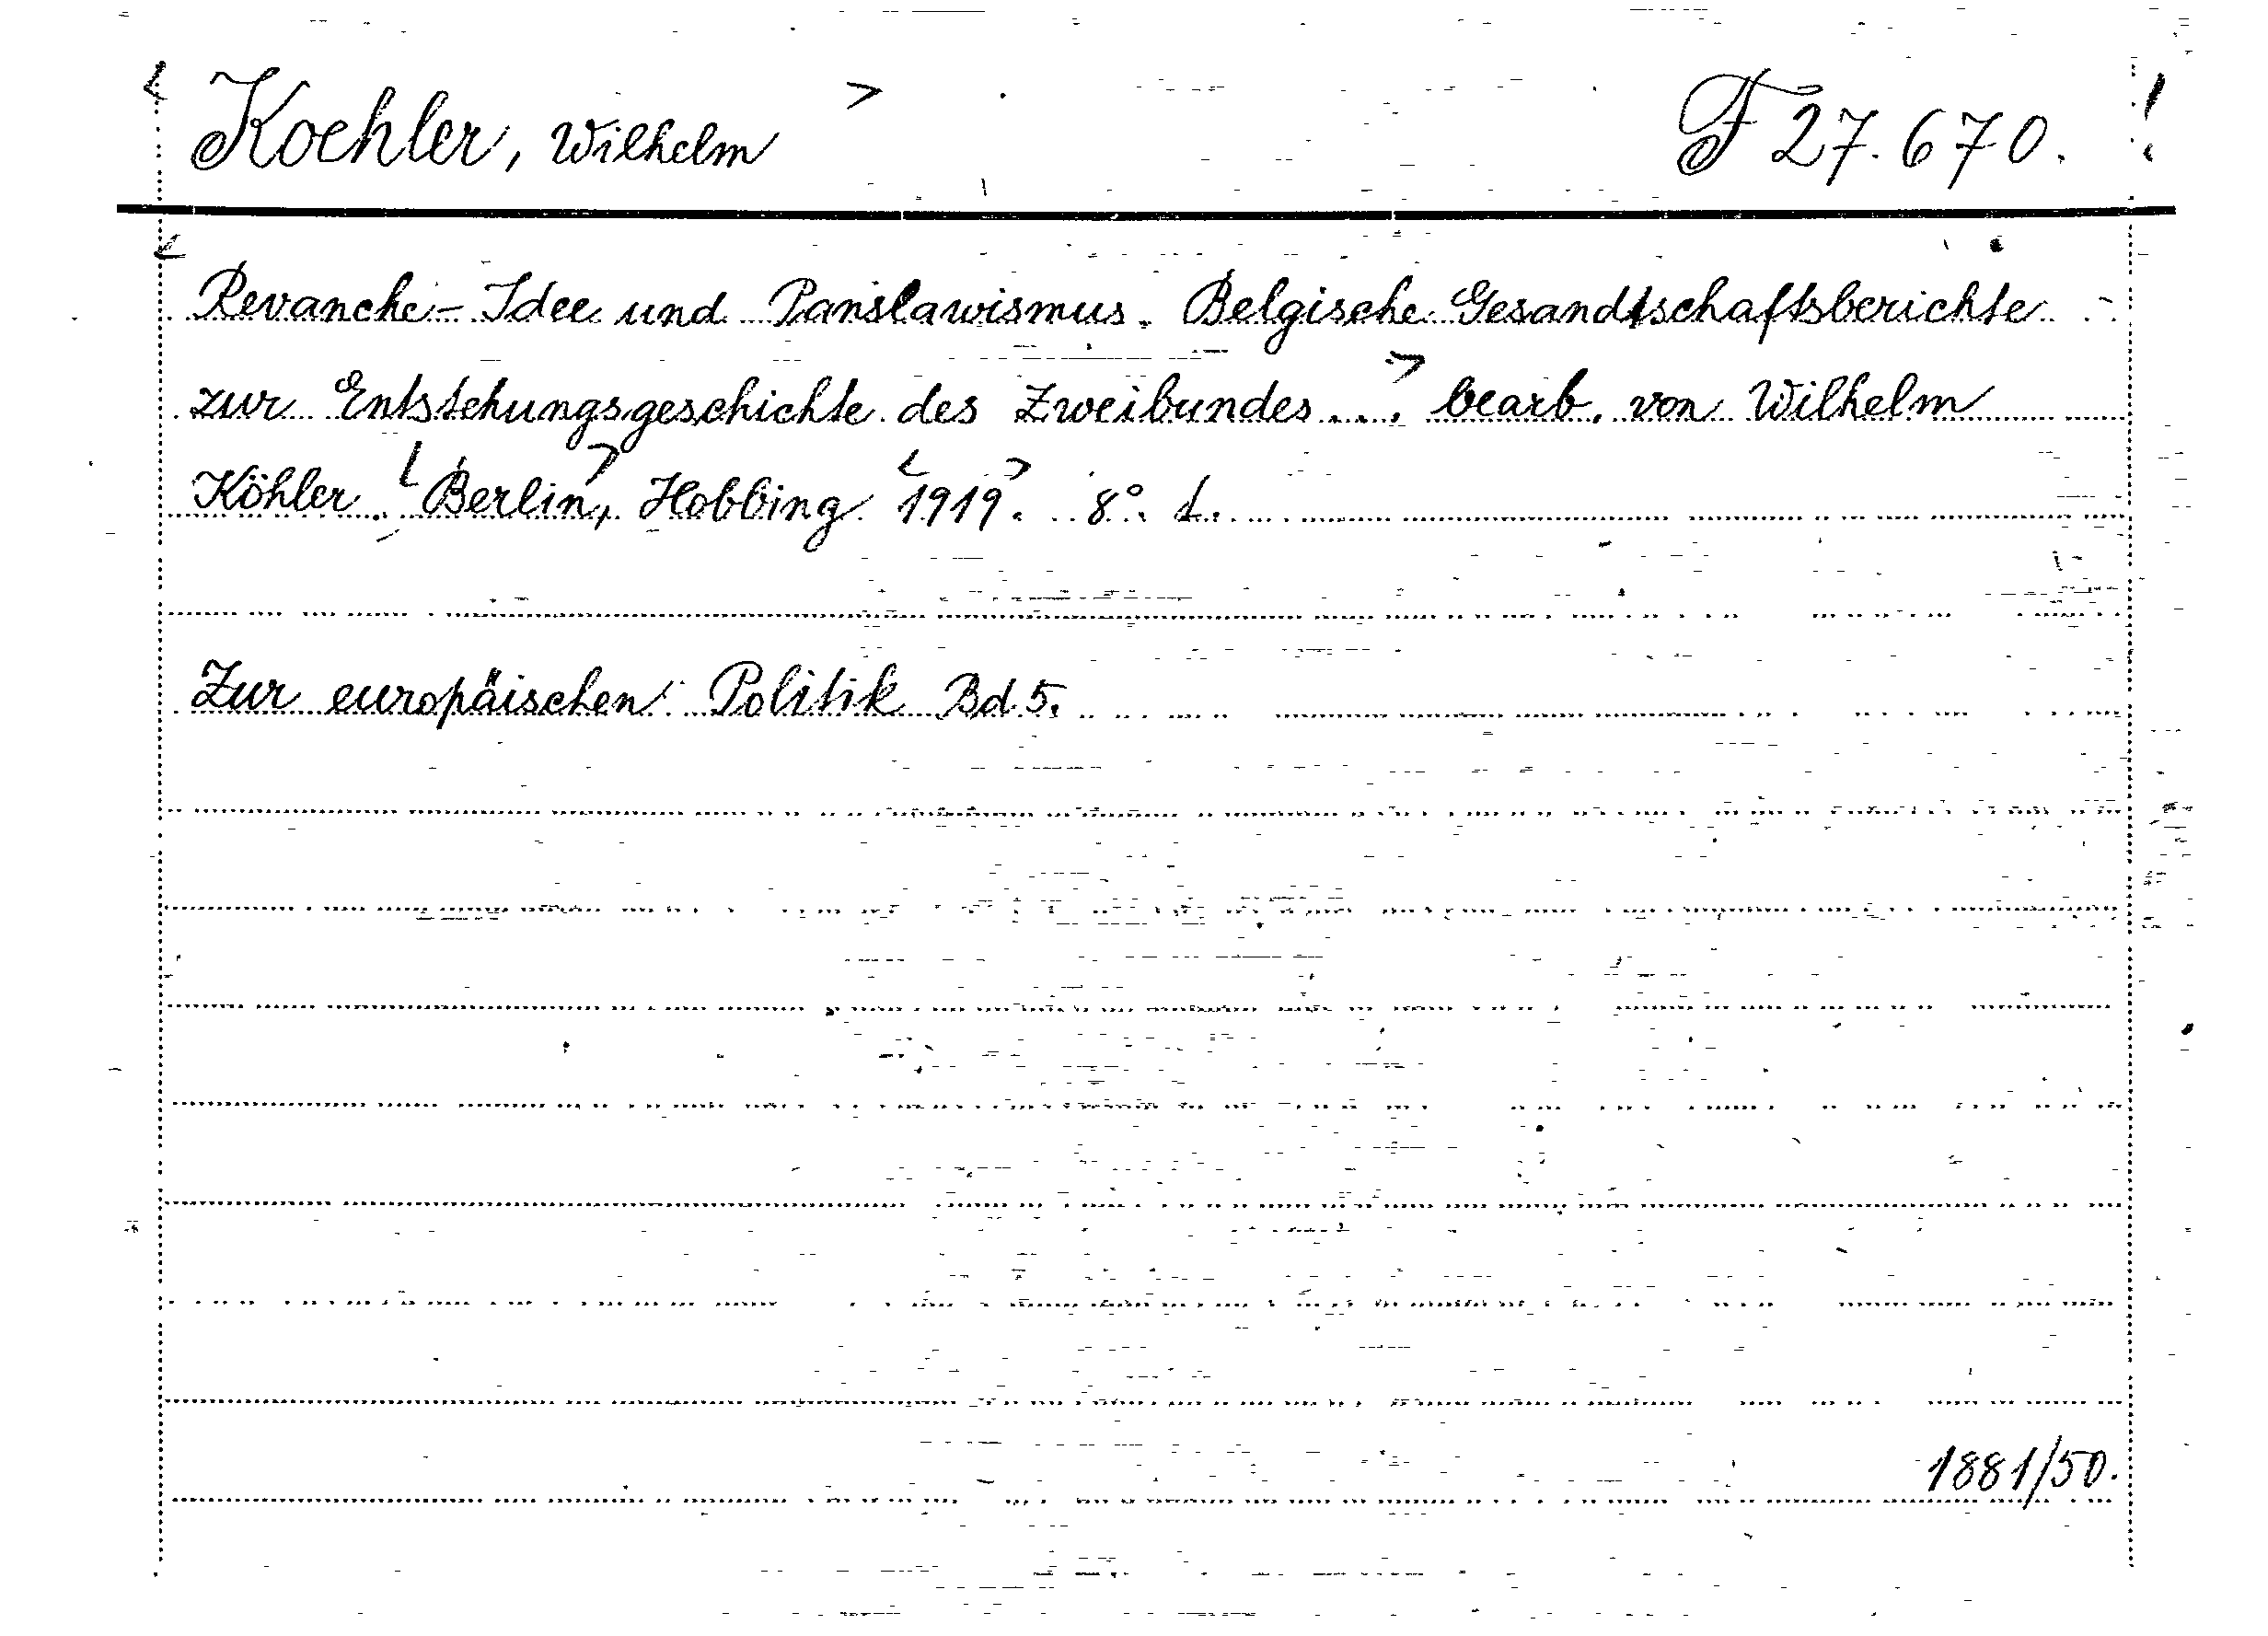 Koehler, Wilhelm F 27.670.
Revanche-Idee und Panslawismus. Belgische Gesandtschaftsberichte
zur Entstehungsgeschichte des Zweibundes... bearb. von Wilhelm
Köhler. Berlin, Hobbing 1919. 8°. L.
Zur europäischen Politik Bd. 5.
1881/50.